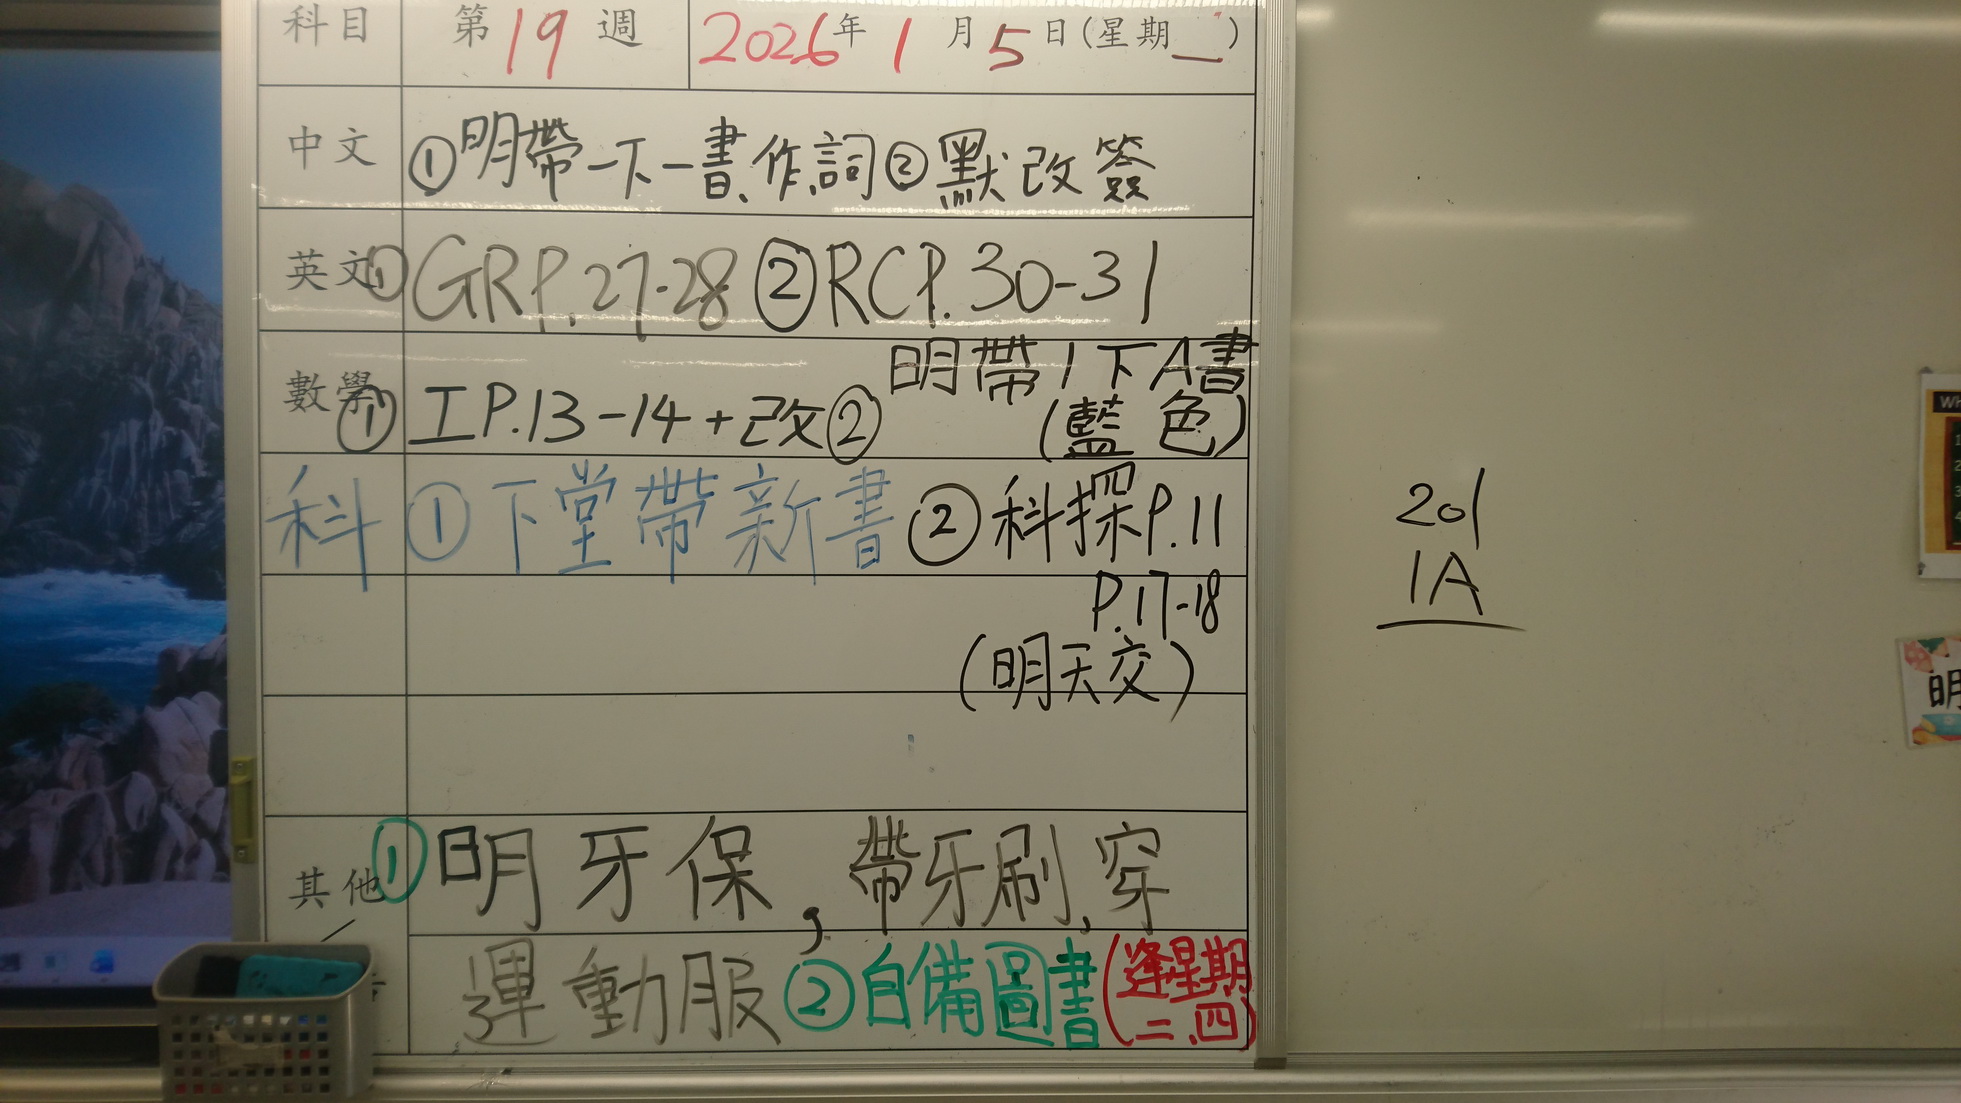 科目 第19週 2026年1月5日(星期一)
中文 ①明帶一下一書、作、詞②默改簽
英文 ①GRP.27-28 ②RCP.30-31
數學 ①工P.13-14+改②明帶1下A書
(藍色)
科 ①下堂帶新書 ②科探P.11
P.17-18
(明天交)
其他 ①明牙保,帶牙刷,穿
運動服②自備圖書(逢星期
二、四)
201
1A
WH
1
2
3
4
明